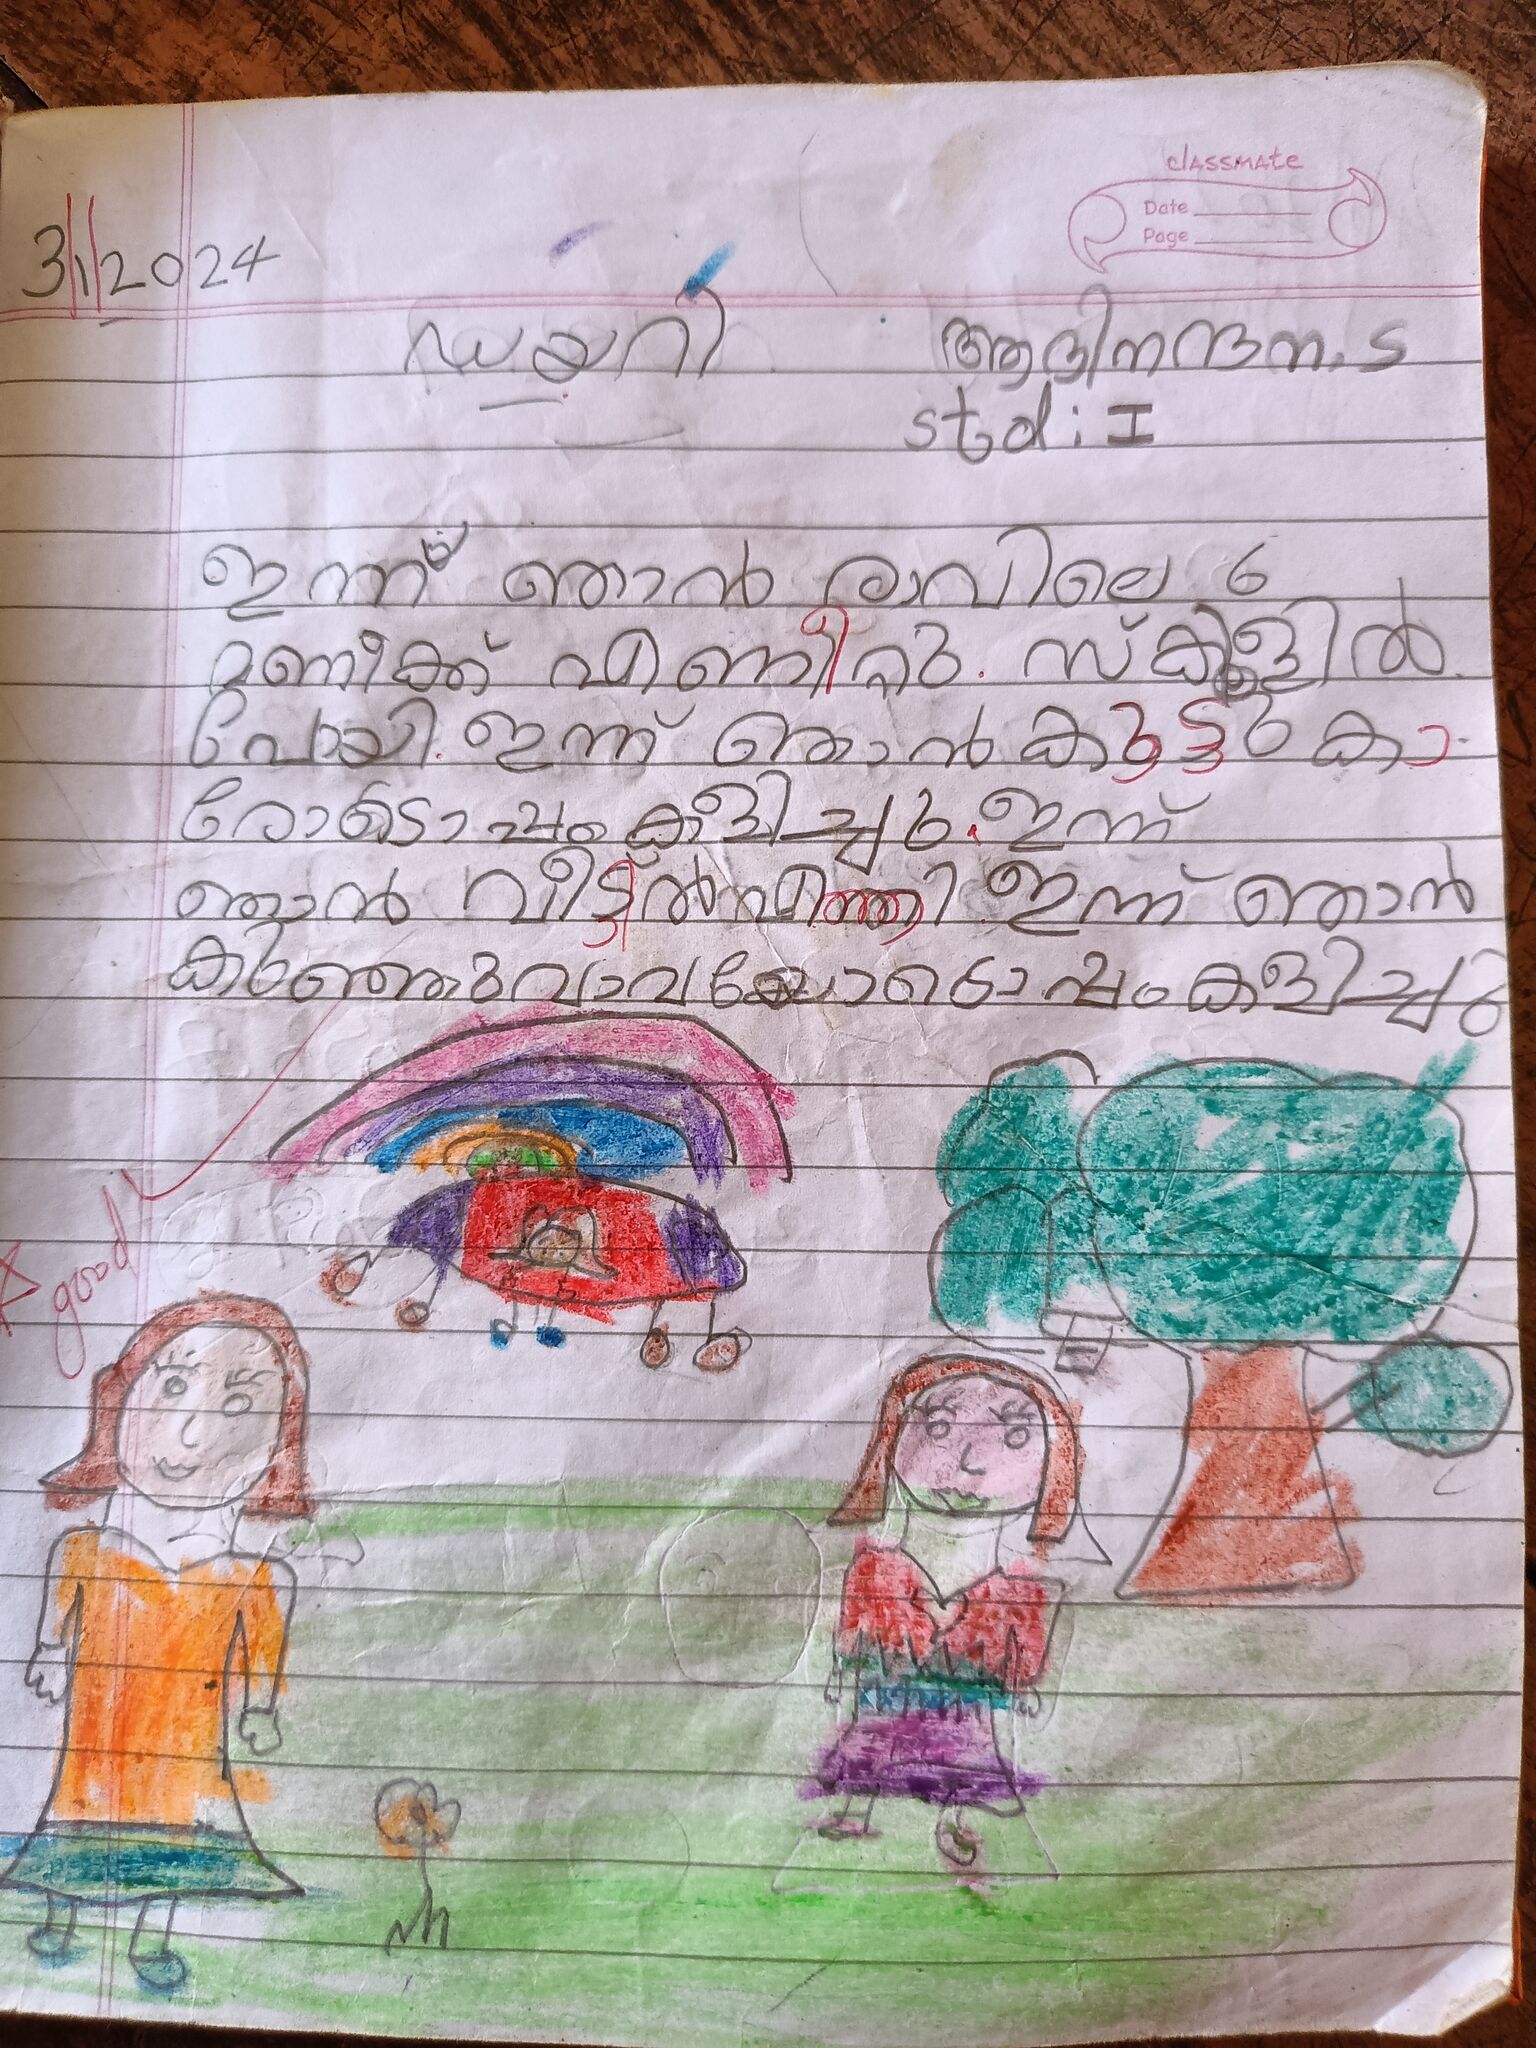 classmate
Date
Page
3/1/2024
ഡയറി
ആദിനന്ദന. S
std : I
ഇന്ന് ഞാൻ രാവിലെ 6
മണിക്ക് എണീറ്റു. സ്കൂളിൽ
പോയി. ഇന്ന് ഞാൻ കൂട്ടുകാ
രോടൊപ്പം കളിച്ചു. ഇന്ന്
ഞാൻ വീട്ടിൽ എത്തി. ഇന്ന് ഞാൻ
കുഞ്ഞുവാവയോടൊപ്പം കളിച്ചു
good